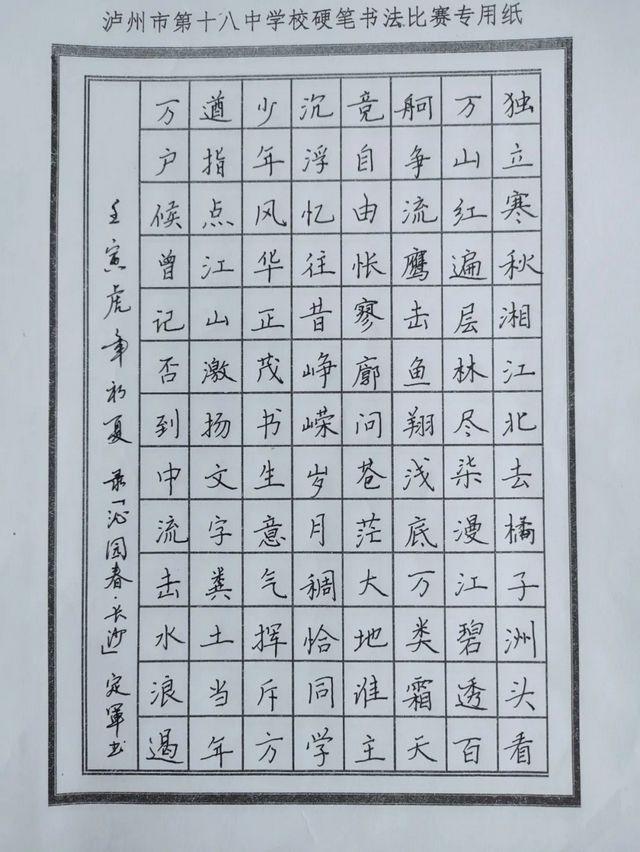 泸州市第十八中学校硬笔书法比赛专用纸
独立寒秋湘江北去橘子洲头看
万山红遍层林尽染漫江碧透百
舸争流鹰击鱼翔浅底万类霜天
竟自由怅寥廓问苍茫大地谁主
沉浮忆往昔峥嵘岁月稠恰同学
少年风华正茂书生意气挥斥方
遒指点江山激扬文字粪土当年
万户候曾记否到中流击水浪遏
壬寅虎年初夏 录「沁园春·长沙」定军书